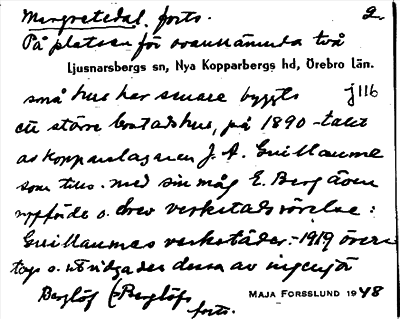 Margretedal. forts. 2.
På platsen för ovannämnda två
Ljusnarsbergs sn, Nya Kopparbergs hd, Örebro län.
små hus har senare byggts j116
ett större bostadshus, på 1890-talet
av kopparslagaren J. A. Guillaume
som tills. med sin måg E. Berg även
uppförde o. drev verkstadsrörelse:
Guillaumes verkstäder. - 1919 över-
togs o. utvidgades dessa av ingenjör
Berglöf (Berglöfs
MAJA FORSSLUND 1948
forts.